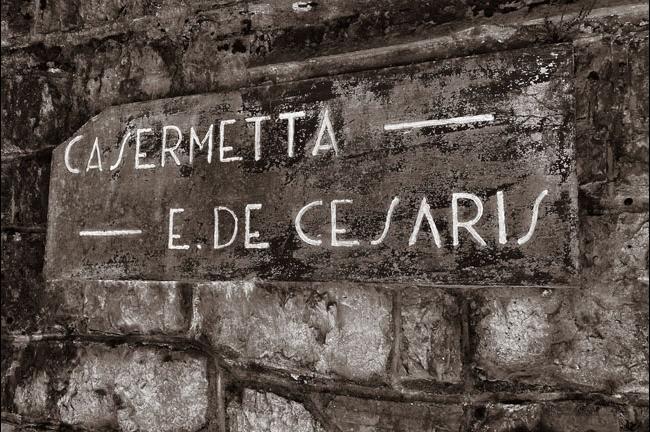 CASERMETTA —
— E. DE CESARIS